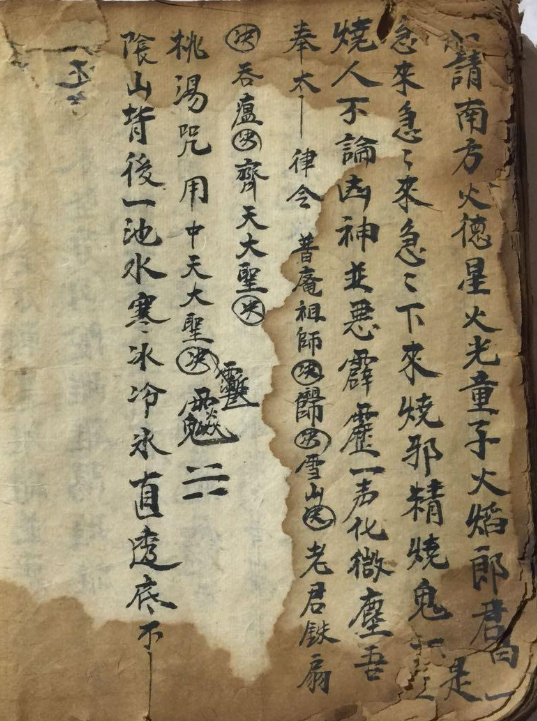 請南方火德星火光童子火焰郎君
急來急〻來急〻下來燒邪精燒鬼
燒人不論凶神並惡霹靂一声化微塵吾
奉太 律令 普庵祖師決歸決雪山決老君鉄扇
決吞廬決齊天大聖決
桃湯咒用中天大聖決
陰山背後一池水寒冰冷氷直透底不